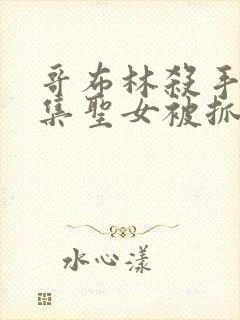 哥布林殺手
集聖女被抓
水心漾